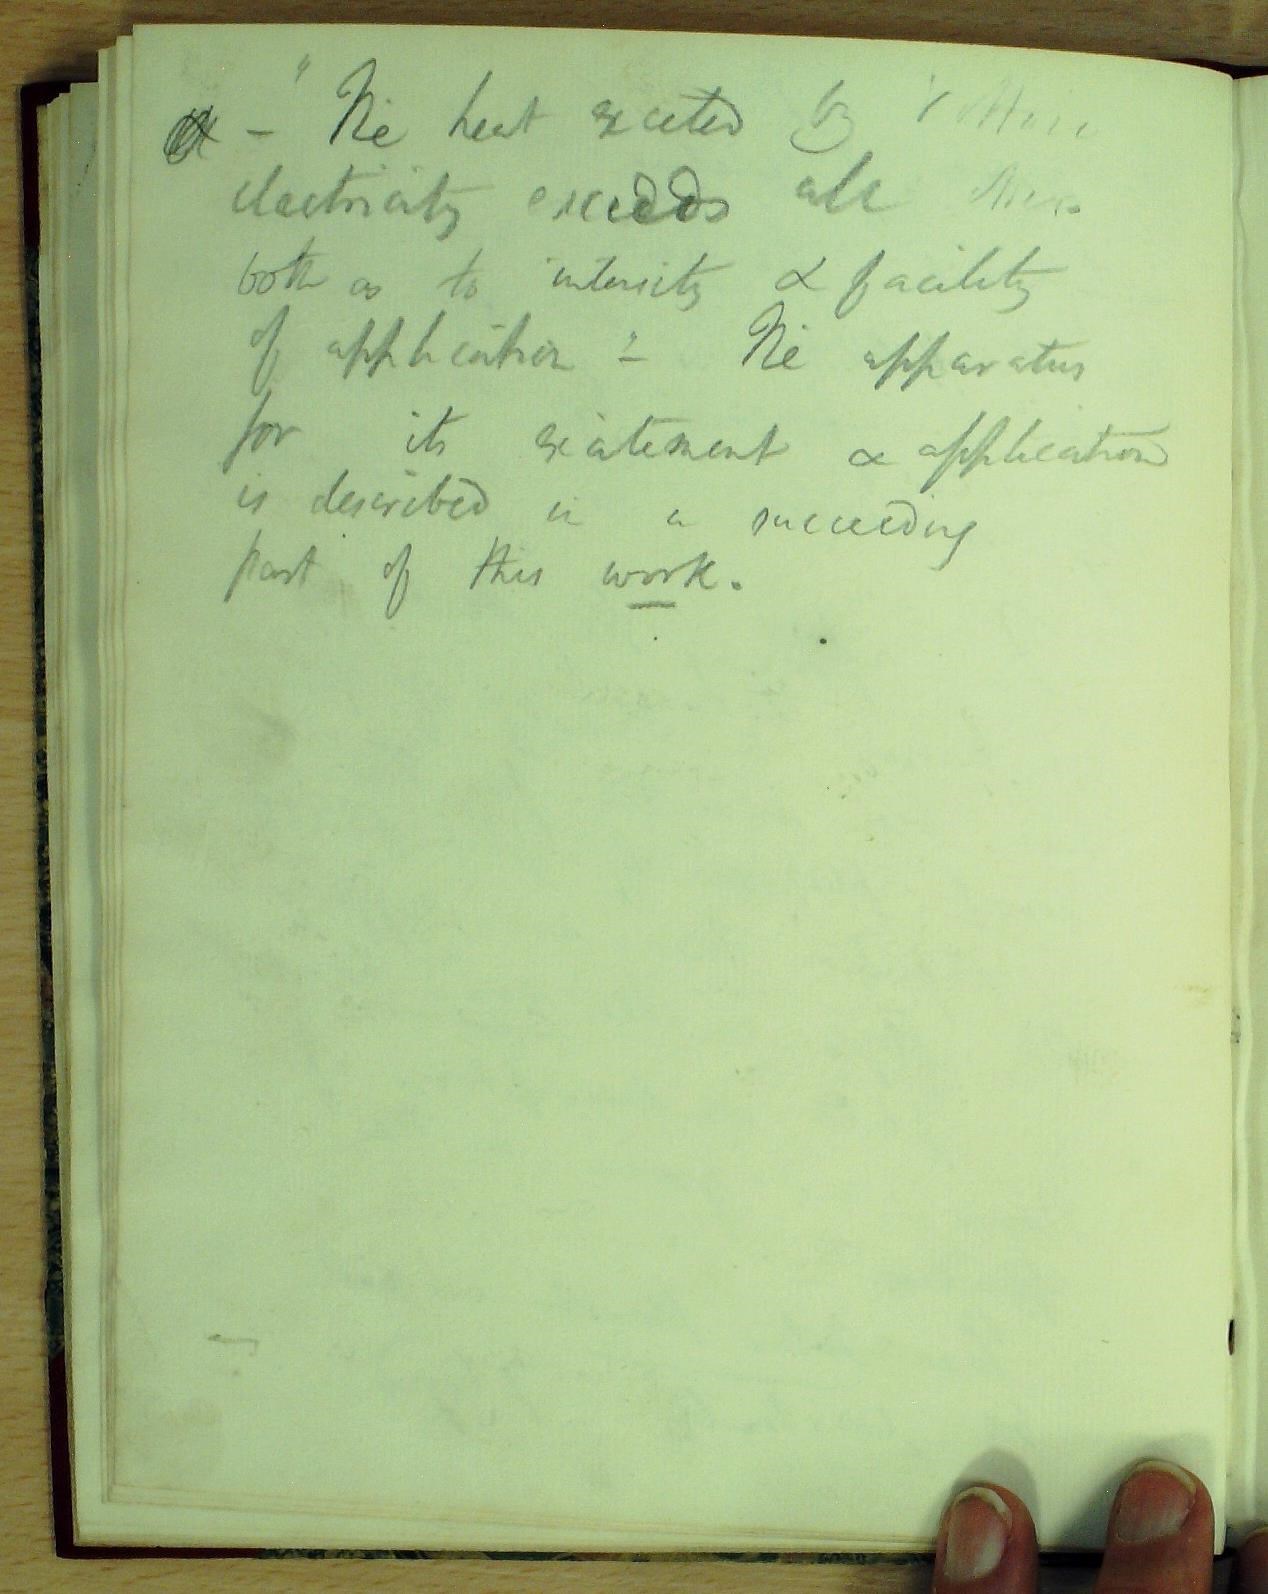 – " The heat excited by Voltaic
electricity exceeds all others
both as to intensity & facility
of application " – The apparatus
for its excitement & application
is described in a succeeding
part of this work.